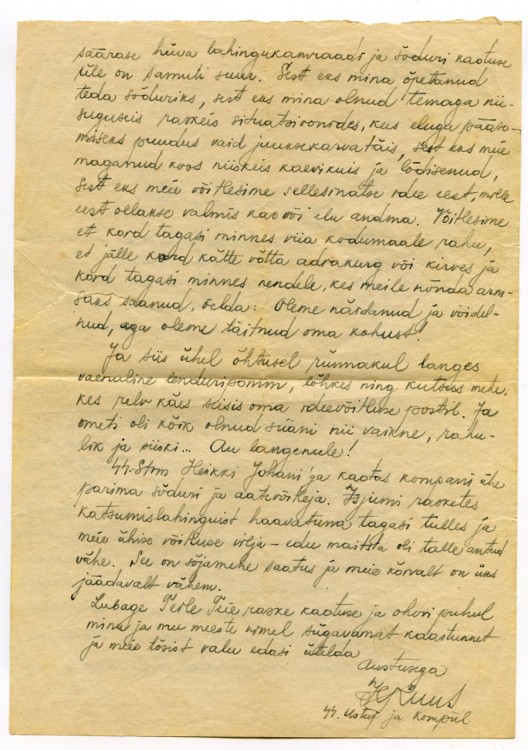 säärase hüva lahingukamraadi ja sõduri kaotuse
üle on samuti suur. Sest eks mina õpetanud
teda sõduriks, sest eks mina olnud temaga nii-
suguseis raskeis situatsioonides, kus eluga pääse-
miseks puudus vaid juuksekarva täis, sest eks meie
maganud koos niiskeis kaevikuis ja lõdisenud,
sest eks meie võitlesime sellesinatse idee eest, mille
eest oellakse valmis ka elu andma. Võitlesime
et kord tagasi minnes viia kodumaale rahu,
et jälle kord kätte võtta adrakurg või kirves ja
kord tagasi minnes nendele, kes meile nõnda arm-
saks saanud, öelda: Oleme närdanud ja võidel-
nud, aga oleme täitnud oma kohust!
Ja siis ühel õhtusel rünnakul langes
vaenuline lenduripomm, lõhkes ning kutsus mehe,
kes relv käes seisis oma ideevõitluse postil. Ja
ometi oli kõik olnud siiani nii vaikne, rahu-
lik ja püski... Au langenule!
44-Strm Heikki Juhani'ga kaotas kompanii ühe
parima sõduri ja aatevõitleja. Izjumi rasketes
katsumislahinguist haavatuna tagasi tulles ja
meie ühise võitluse vilja - edu maitsta oli talle antud
vähe. See on sõjamehe saatus ja meie kõrvalt on üks
jäädavalt vähem.
Lubage Teile Teie raske kaotuse ja ohvri puhul
minu ja mu meeste nimel sügavamat kaastunnet
ja meie tõsist valu edasi ütelda
Austusega
44. Ustuf ja kompül